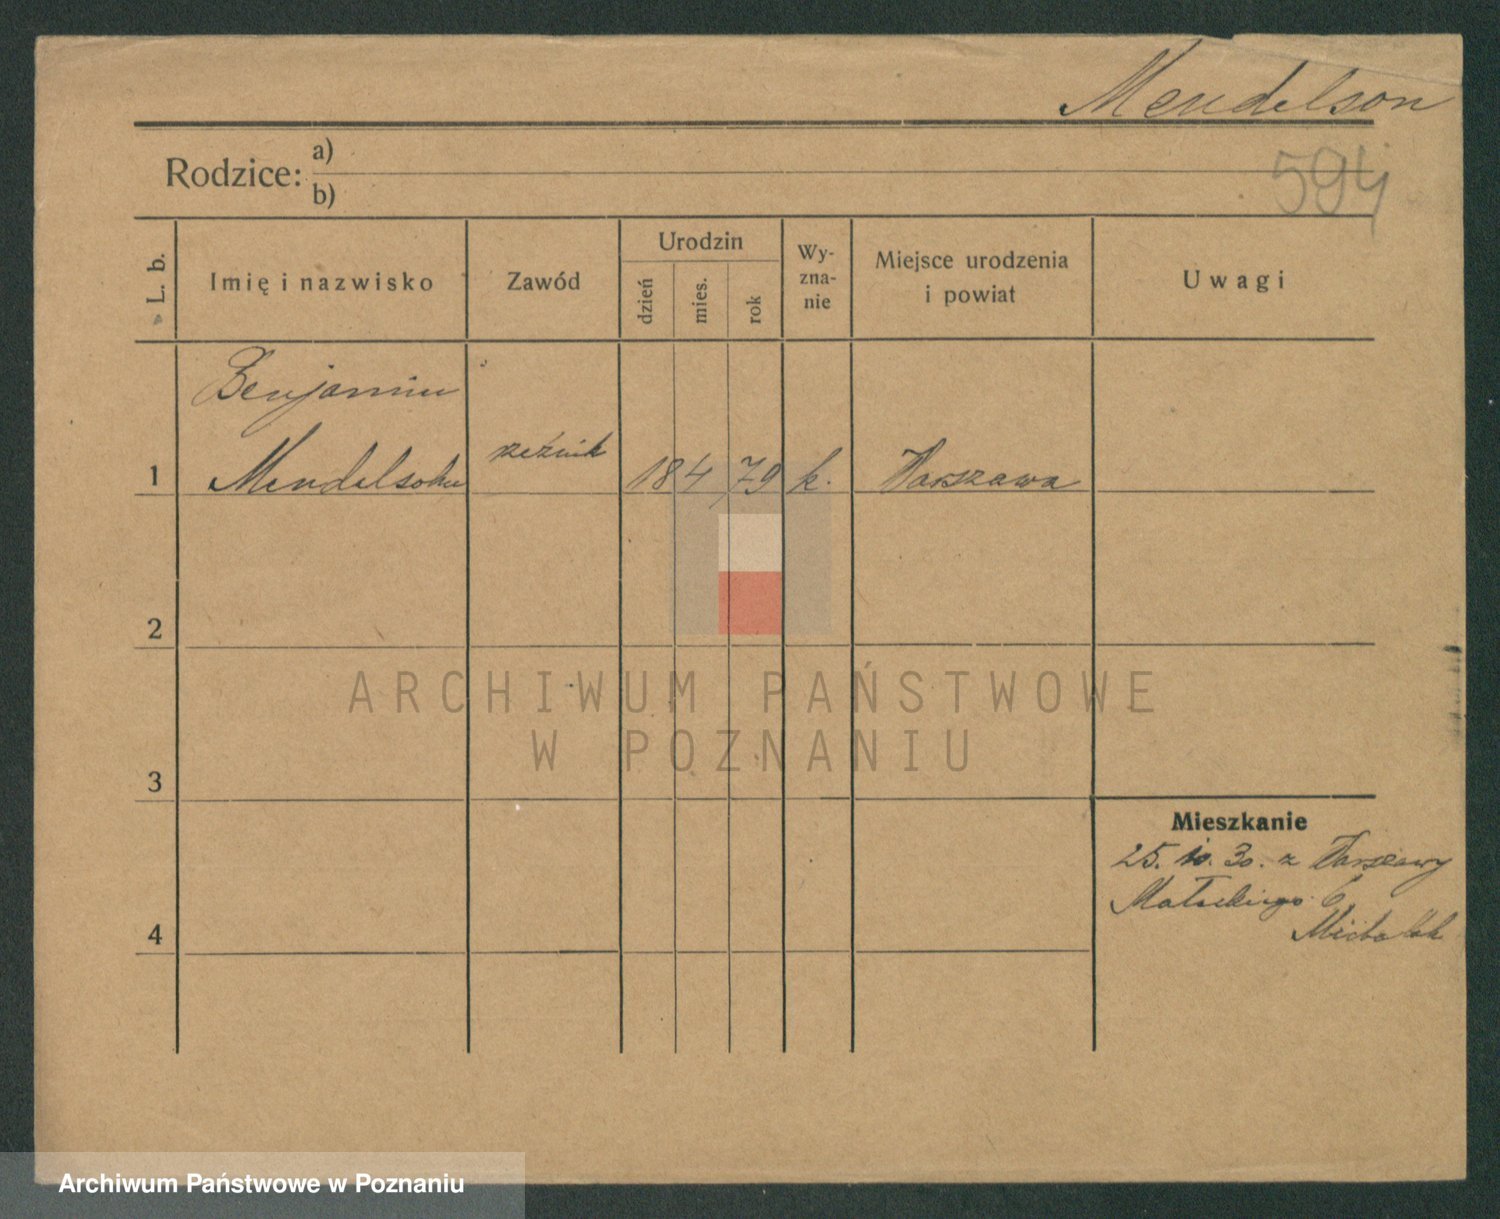 Mendelson
Rodzice:
a)
b)
594
L. b.
Imię i nazwisko
Zawód
Urodzin
dzień
mies.
rok
Wy-
zna-
nie
Miejsce urodzenia
i powiat
Uwagi
Benjamin
1
Mendelsohn
rzeźnik
18 4 79
k.
Warszawa
2
3
4
Mieszkanie
25. 10. 30. z Warszawy
Małeckiego 6
Michalak
ARCHIWUM PAŃSTWOWE
W POZNANIU
Archiwum Państwowe w Poznaniu